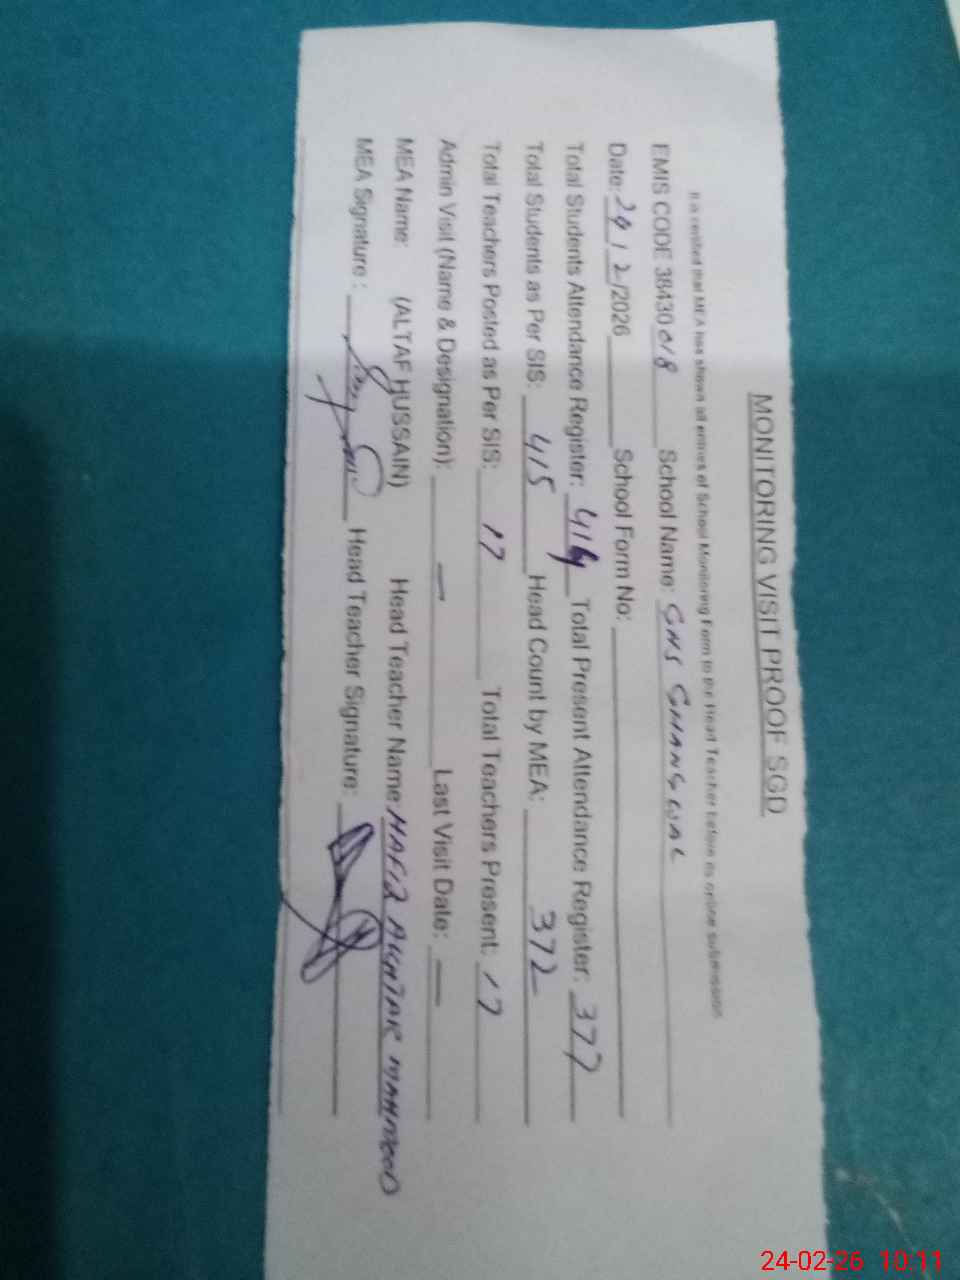 MONITORING VISIT PROOF SGD
It is certified that MEA has shown all entries of School Monitoring Form to the Head Teacher before its online submission
EMIS CODE 38430018 School Name: GHS GHANGWAL
Date: 24/2/2026 School Form No:
Total Students Attendance Register: 414 Total Present Attendance Register: 377
Total Students as Per SIS: 415 Head Count by MEA: 372
Total Teachers Posted as Per SIS: 17 Total Teachers Present: 17
Admin Visit (Name & Designation): — Last Visit Date: —
MEA Name: (ALTAF HUSSAIN) Head Teacher Name: HAFIZ AKHTAR MAHMOOD
MEA Signature : Head Teacher Signature:
24-02-26 10:11